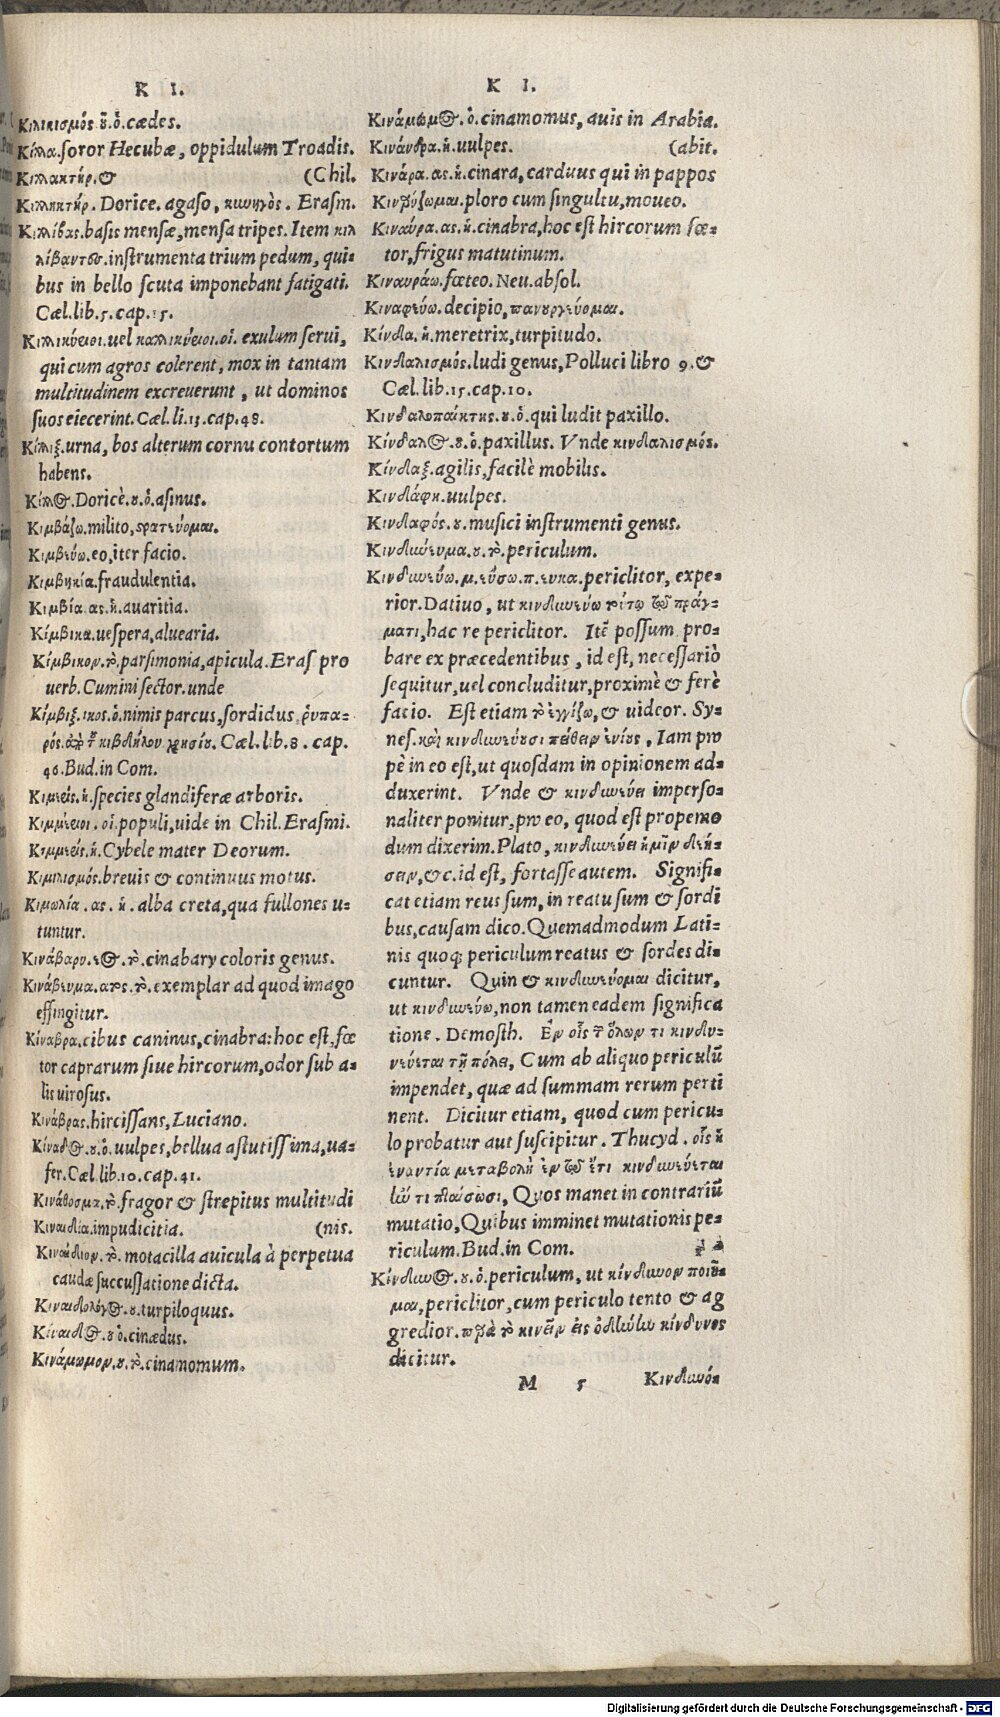 K I.
Κιλικισμός ȣ͂. ὁ. cædes.
Κίλλα. soror Hecubæ, oppidulum Troadis.
Κιλλακτήρ. & (Chil.
Κιλληκτήρ. Dorice. agaso, κιωηγὸς. Erasm.
Κιλλίβας. basis mensæ, mensa tripes. Item κιλ
λίβαντες. instrumenta trium pedum, qui-
bus in bello scuta imponebant fatigati.
Cæl. lib. 5. cap. 15.
Κιλλικύειοι. uel καλλικύειοι. οἱ. exulum serui,
qui cum agros colerent, mox in tantam
multitudinem excreuerunt, ut dominos
suos eiecerint. Cæl. li. 13. cap. 48.
Κίλλιξ. urna, bos alterum cornu contortum
habens.
Κίλλος. Doricè. ȣ. ὁ. asinus.
Κιμβάζω. milito, στρατεύομαι.
Κιμβεύω. eo, iter facio.
Κιμβηκία. fraudulentia.
Κιμβία. ας. ἡ. auaritia.
Κίμβικα. uespera, aluearia.
Κίμβικον. τὸ. parsimonia, apicula. Eras pro
uerb. Cumini sector. unde
Κίμβιξ. ικος. ὁ. nimis parcus, sordidus, ῥυπα-
ρός. ἀπὸ τ͂ κιβδήλου χρησίȣ. Cæl. lib. 8. cap.
46. Bud. in Com.
Κιμεείς. ἡ. species glandiferæ arboris.
Κιμμέειοι. οἱ. populi, uide in Chil. Erasmi.
Κιμμεείς. ἡ. Cybele mater Deorum.
Κιμπλισμός. breuis & continuus motus.
Κιμωλία. ας. ἡ. alba creta, qua fullones u-
tuntur.
Κινάβαρυ. εος. τὸ. cinabary coloris genus.
Κινάβευμα. ατος. τὸ. exemplar ad quod imago
effingitur.
Κίναβρα. cibus caninus, cinabra: hoc est, fœ
tor caprarum siue hircorum, odor sub a-
lis uirosus.
Κινάβρας. hircissans, Luciano.
Κίναδος. ȣ. ὁ. uulpes, bellua astutissima, ua-
fer. Cæl. lib. 10. cap. 41.
Κινάθοσμα. τὸ. fragor & strepitus multitudi
Κιναιδία. impudicitia. (nis.
Κιναίδιον. τὸ. motacilla auicula à perpetua
caudæ succussatione dicta.
Κιναιδολόγος. ȣ. turpiloquus.
Κίναιδος. ȣ ὁ. cinædus.
Κινάμωμον. ȣ. τὸ. cinamomum.
K I.
Κινάμωμος. ὁ. cinamomus, auis in Arabia.
Κινάνδρα. ἡ. uulpes. (abit.
Κινάρα. ας. ἡ. cinara, carduus qui in pappos
Κινβύζωμαι. ploro cum singultu, moueo.
Κιναύρα. ας. ἡ. cinabra, hoc est hircorum fœ-
tor, frigus matutinum.
Κιναυράω. fœteo. Neu. absol.
Κιναφεύω. decipio, πανουργεύομαι.
Κίνδα. ἡ. meretrix, turpitudo.
Κινδαλισμός. ludi genus, Polluci libro 9. &
Cæl. lib. 15. cap. 10.
Κινδαλοπαίκτης. ȣ. ὁ. qui ludit paxillo.
Κίνδαλος. ȣ. ὁ. paxillus. Vnde κινδαλισμός.
Κίνδαξ. agilis, facilè mobilis.
Κινδάφη. uulpes.
Κινδαφός. ȣ. musici instrumenti genus.
Κινδύνευμα. ȣ. τὸ. periculum.
Κινδυνεύω. μ. εύσω. π. ευκα. periclitor, expe-
rior. Datiuo, ut κινδυνεύω τύτῳ τῷ πράγ-
ματι, hac re periclitor. Itē possum pro-
bare ex præcedentibus, id est, necessariò
sequitur, uel concluditur, proximè & ferè
facio. Est etiam τὸ ἐγγίζω, & uideor. Sy-
nes. καὶ κινδυνεύουσι πείθειν ἐνίους, Iam pro
pè in eo est, ut quosdam in opinionem ad-
duxerint. Vnde & κινδυνεύει imperso-
naliter ponitur, pro eo, quod est propemo
dum dixerim. Plato, κινδυνεύει ἡμῖν δεή-
σειν, &c. id est, fortasse autem. Signifi-
cat etiam reus sum, in reatu sum & sordi
bus, causam dico. Quemadmodum Lati-
nis quoq; periculum reatus & sordes di-
cuntur. Quin & κινδυνεύομαι dicitur,
ut κινδυνεύω, non tamen eadem significa
tione. Demosth. Ἐν οἷς τ͂ ὅλων τι κινδυ-
νεύεται τῇ πόλει, Cum ab aliquo periculū
impendet, quæ ad summam rerum perti
nent. Dicitur etiam, quod cum pericu-
lo probatur aut suscipitur. Thucyd. οἷς ἡ
ἐναντία μεταβολὴ ἐν τῷ ἔτι κινδυνεύεται
ἤν τι πταίσωσι, Quos manet in contrariū
mutatio, Quibus imminet mutationis pe-
riculum. Bud. in Com.
Κίνδυνος. ȣ. ὁ. periculum, ut κίνδυνον ποιȣ͂-
μαι, periclitor, cum periculo tento & ag
gredior. παρὰ τὸ κινεῖν εἰς ὀδύνην κίνδυνος
dicitur.
M 5 Κινδυνό-
Digitalisierung gefördert durch die Deutsche Forschungsgemeinschaft - DFG